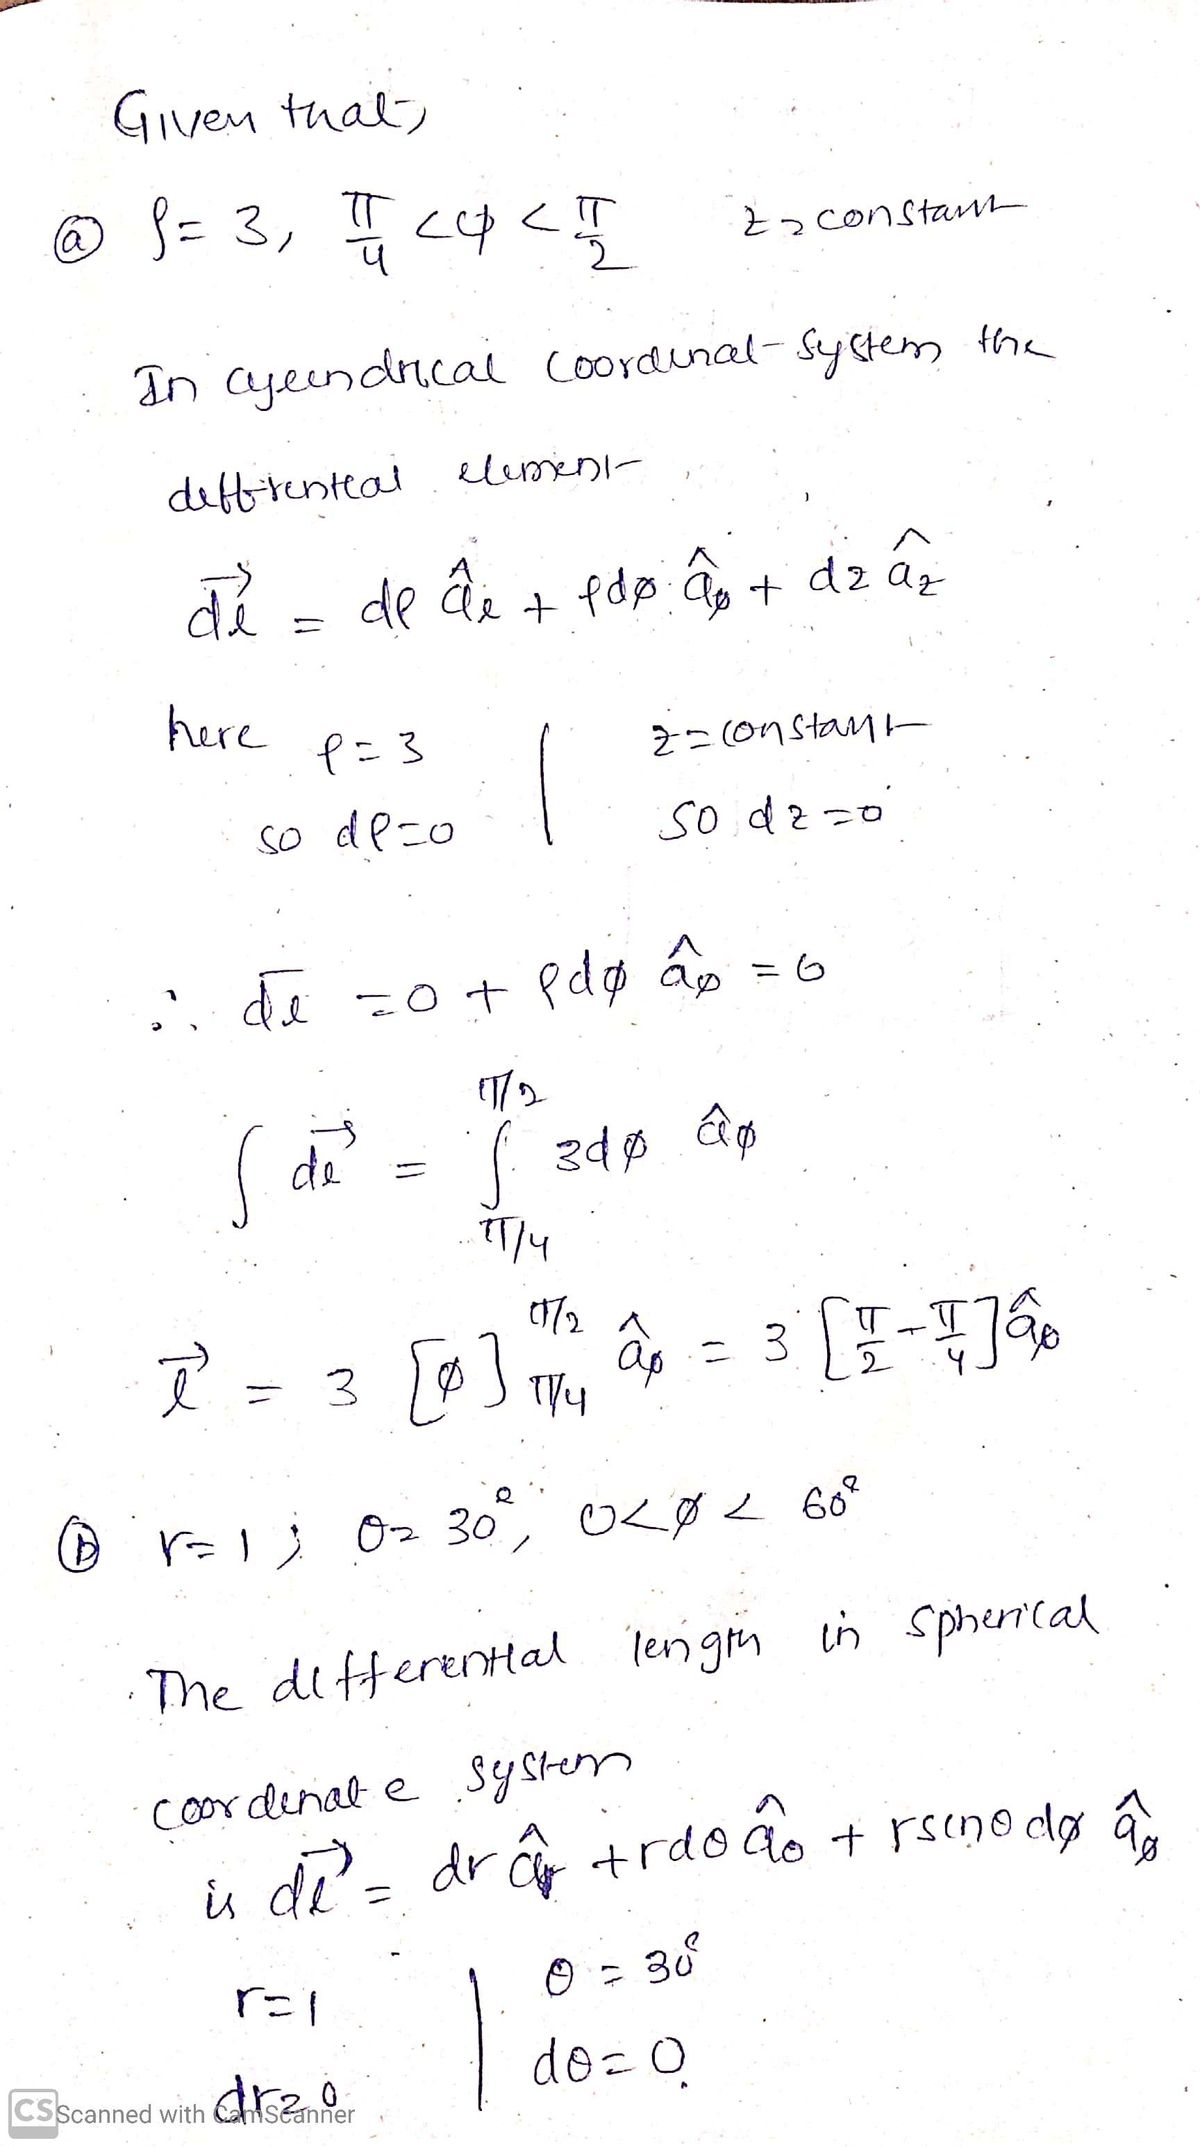 Given that,
ⓐ ρ = 3, π/4 < φ < π/2 z = constant
In cylindrical coordinat system the
differential element
dl⃗ = dρ âρ + ρdø âø + dz âz
here ρ = 3 | z = constant
so dρ = 0 | so dz = 0
∴ dl = 0 + ρdø âø = 0
∫ dl⃗ = ∫_{π/4}^{π/2} 3dø âø
l⃗ = 3 [ø]_{π/4}^{π/2} âø = 3 [π/2 - π/4] âø
ⓑ r = 1 ; θ = 30°, 0 < ø < 60°
The differential length in spherical
coordinate system
is dl⃗ = dr âr + rdθ âθ + rsinθdø âø
r = 1 | θ = 30°
dr = 0 | dθ = 0
CS Scanned with CamScanner